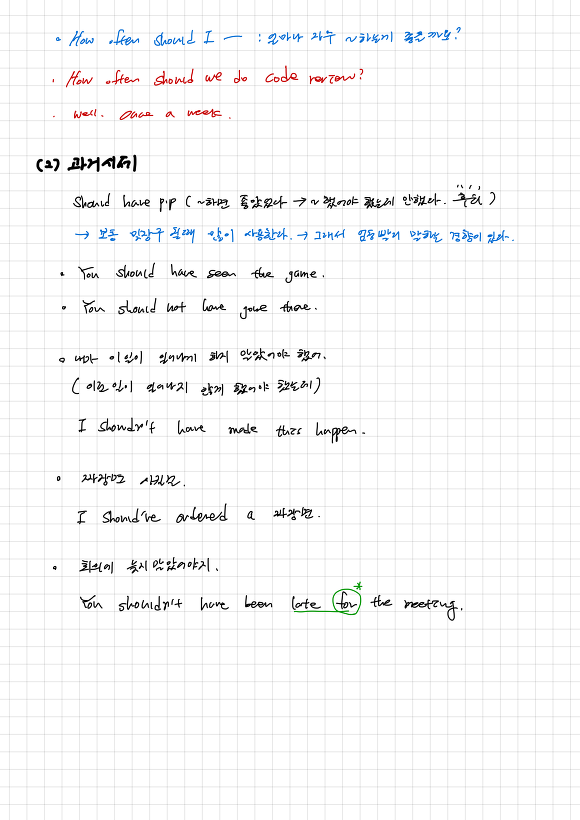 • How often should I — : 얼마나 자주 ~하는게 좋을까요?
• How often should we do code review?
• Well. once a week.
(2) 과거시제
Should have p.p (~하면 좋았겠다 → ~했어야 했는데 안했다. 후회)
→ 보통 맞장구 칠때 많이 사용한다. → 그래서 말하는 경향이 있다.
• You should have seen the game.
• You should not have gone there.
• 내가 이 일이 일어나게 하지 말았어야 했어.
(이런 일이 일어나지 않게 했어야 했는데)
I shouldn't have made this happen.
• 짜장면 시킬걸.
I should've ordered a 짜장면.
• 회의에 늦지 말았어야지.
You shouldn't have been late for* the meeting.